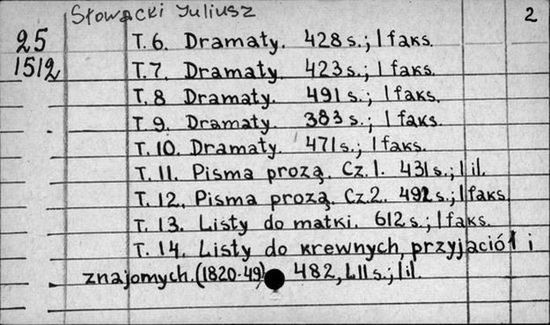 Słowacki Juliusz 2
25 T. 6. Dramaty. 428 s.; 1 faks.
1512 T. 7. Dramaty. 423 s.; 1 faks.
T. 8 Dramaty. 491 s.; 1 faks.
T. 9. Dramaty. 383 s.; 1 faks.
T. 10. Dramaty. 471 s.; 1 faks.
T. 11. Pisma prozą. Cz. 1. 431 s.; 1 il.
T. 12. Pisma prozą. Cz. 2. 492 s.; 1 faks
T. 13. Listy do matki. 612 s.; 1 faks.
T. 14. Listy do krewnych, przyjaciół i
znajomych. (1820-49) 482, LII s.; 1 il.